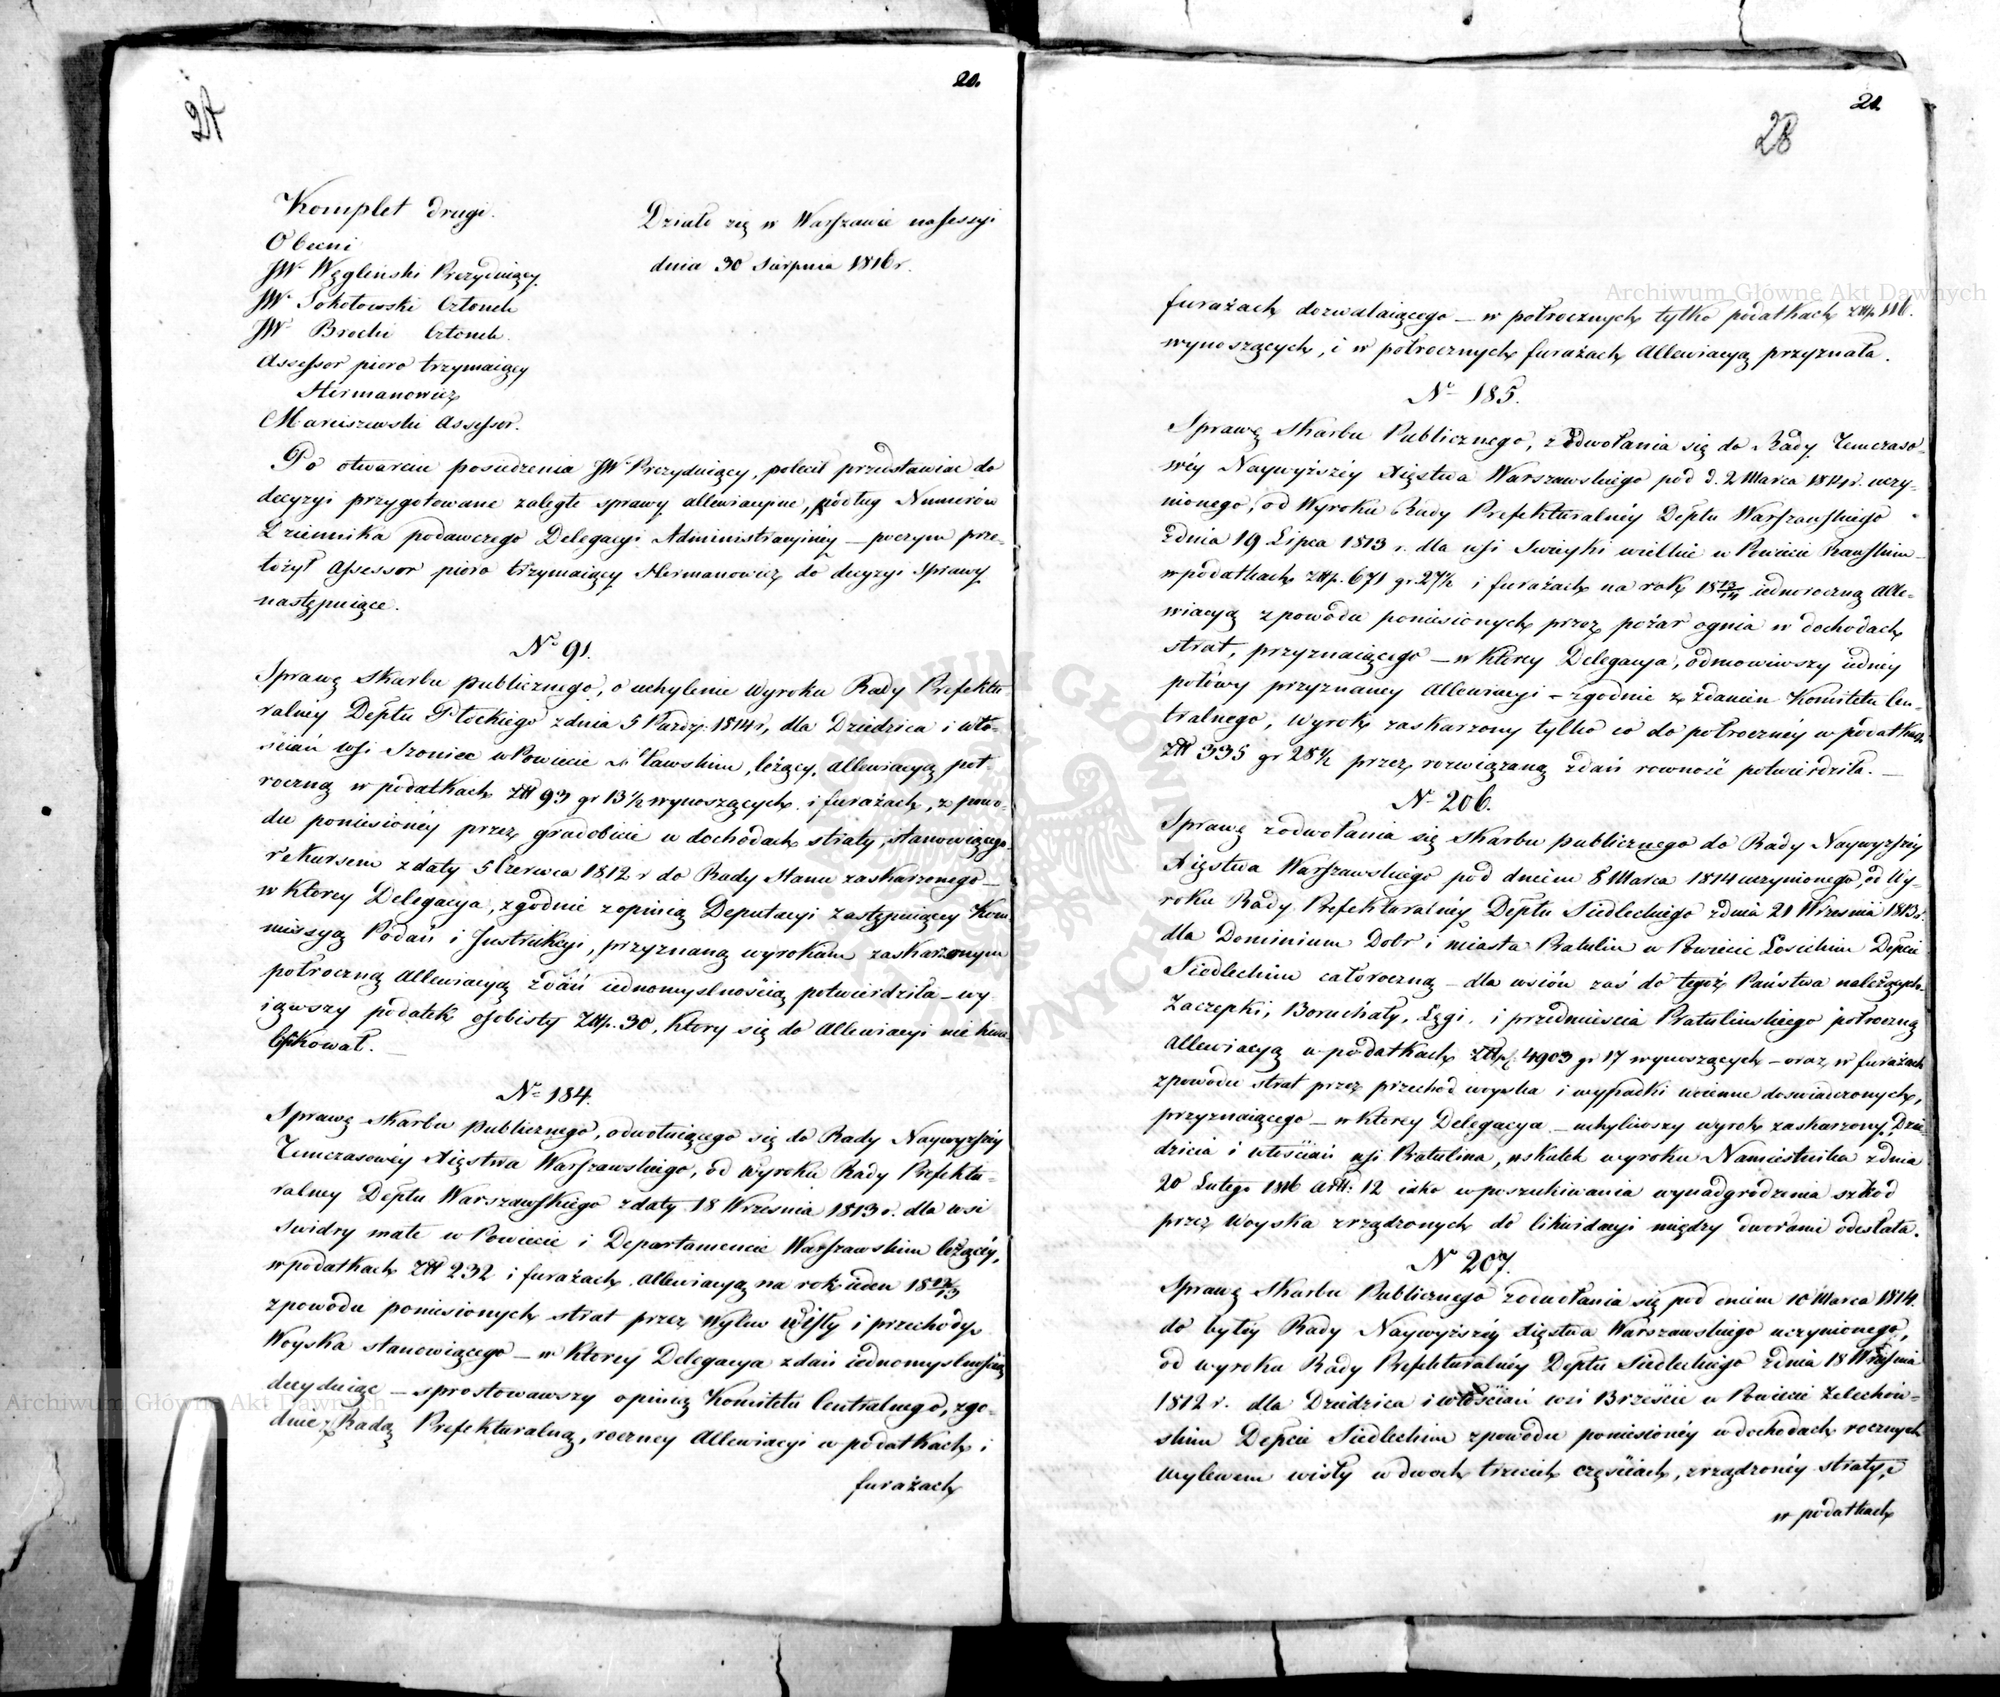 20.
27
Komplet drugi.
Działo się w Warszawie na Sessyi
dnia 30 Sierpnia 1816 r.
Obecni
JW Węgliński Prezyduiący
JW Sokołowski Członek
JW Brocki Członek
Assessor pioro trzymaiący
Hermanowicz
Marciszewski Assessor.
Po otwarciu posiedzenia JW Prezyduiący, polecił przedstawiać do
decyzyi przygotowane zaległe sprawy allewiacyine, podług Numerów
Dziennika podawczego Delegacyi Administracyiney — poczym prze-
łożył Assessor pioro trzymaiący Hermanowicz do decyzyi Sprawy
następuiące.
No 91.
Sprawę Skarbu publicznego, o uchylenie Wyroku Rady Prefektu-
ralney Deptu Płockiego z dnia 5 Pazdz. 1811 r, dla Dziedzica i wło-
ścian wsi Szoniec w Powiecie Mławskim, leżący, allewiacyą pół-
roczną w podatkach Złł 93 gr 13½ wynoszących i furażach, z powo-
du poniesionéy przez gradobicie w dochodach straty, stanowiącego
rekursem z daty 5 Czerwca 1812 r do Rady Stanu zaskarzonego —
w ktorey Delegacya, zgodnie z opinią Deputacyi zastępuiącey Kom-
missyą Podań i Instrukcyi, przyznaną wyrokiem zaskarzonym
połroczną Allewiacyą zdań iednomyslnością potwierdziła — wy-
iąwszy podatek osobisty Złłp. 30, ktory się do Allewiacyi nie kwa-
lifikował. —
No 184.
Sprawę Skarbu publicznego, odwołuiącego się do Rady Naywyższéy
Temczasowéy Xięstwa Warszawskiego, od wyroku Rady Prefektu-
ralney Deptu Warszawskiego z daty 18 Wrzesnia 1813 r. dla wsi
Swidry małe w Powiecie i Departamencie Warszawskim leżącéy,
w podatkach Złł 232 i furażach allewiacyą na rok ieden 1812/13
z powodu poniesionych strat przez wylew Wisły i przechody
Woyska stanowiącego — w ktorey Delegacya zdań iednomyslnością
decyduiąc — sprostowawszy opinią Komitetu Centralnego, zgo-
dnie z Radą Prefekturalną, roczney Allewiacyi w podatkach i
furażach
21.
28
furażach dozwalaiącego — w połrocznych tylko podatkach Złłp. 116.
wynoszących, i w połrocznych furażach Allewiacyą przyznała.
No 185.
Sprawę Skarbu Publicznego, z odwołania się do Rady Temczaso-
wéy Naywyższéy Xięstwa Warszawskiego pod d. 2 Marca 1814 r. uczy-
nionego, od Wyroku Rady Prefekturalnéy Deptu Warszawskiego
z dnia 19 Lipca 1813 r. dla wsi Swieyki wielkie w Powiecie Rawskim
w podatkach Złłp. 671 gr. 27½ i furażach na rok 1813/14 iednoroczną Alle-
wiacyą z powodu poniesionych przez pożar ognia w dochodach
strat, przyznaiącego — w ktorey Delegacya, odmowiwszy iednéy
połowy przyznaney Allewiacyi — zgodnie z zdaniem Komitetu Cen-
tralnego, Wyrok zaskarzony tylko co do połroczney w podatkach
Złł 335 gr 28½ przez rozwiązaną zdań rowność potwierdziła. —
No 206.
Sprawę z odwołania się Skarbu publicznego do Rady Naywyższéy
Xięstwa Warszawskiego pod dniem 8 Marca 1814 uczynionego, od Wy-
roku Rady Prefekturalnéy Deptu Siedleckiego z dnia 21 Wrzesnia 1813 r.
dla Dominium Dobr i miasta Ratulin w Powiecie Łosickim Depcie
Siedleckim całoroczną — dla wsiów zaś do tegoż Państwa należących
Zaczepki, Boruchały, Łęgi, i przedmieścia Pratulinskiego połroczną
allewiacyą w podatkach Złłp. 4903 gr 17 wynoszących — oraz w furażach
z powodu strat przez przechod woyska i wypadki woienne doswiadczonych,
przyznaiącego — w ktorey Delegacya — uchyliwszy wyrok zaskarzony, Dzie-
dzica i włościan wsi Ratulina, w skutek wyroku Namiestnika z dnia
20 Lutego 1816 Artt: 12 iako w poszukiwaniu wynadgrodzenia szkod
przez Woyska zrządzonych do likwidacyi między dworami odesłała.
No 207.
Sprawę Skarbu Publicznego z odwołania się pod dniem 10 Marca 1814.
do byłéy Rady Naywyższéy Xięstwa Warszawskiego uczynionego,
od wyroku Rady Prefekturalnéy Deptu Siedleckiego z dnia 18 Wrzesnia
1812 r. dla Dziedzica i włościan wsi Brzeście w Powiecie Zelechow-
skim Depcie Siedleckim z powodu poniesionéy w dochodach rocznych
wylewem wisły w dwoch trzecich częściach, zrządzonéy straty,
w podatkach
Archiwum Główne Akt Dawnych